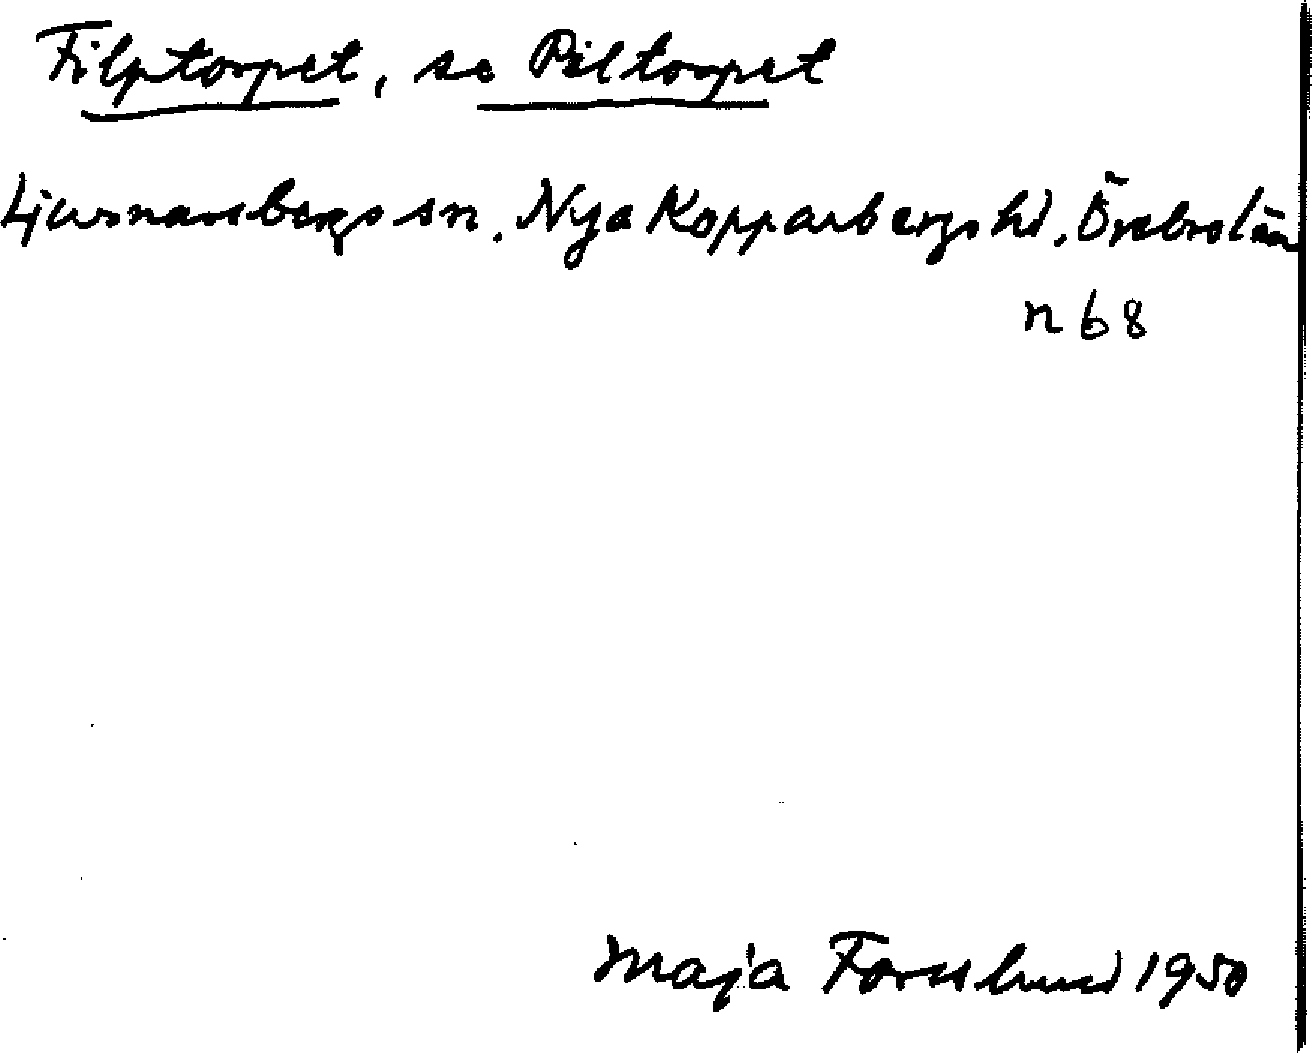 Filptorpet, se Piltorpet
Ljusnarsbergs sn. Nya Kopparbergs hd. Örebro län
n 68
Maja Forsslund 1950